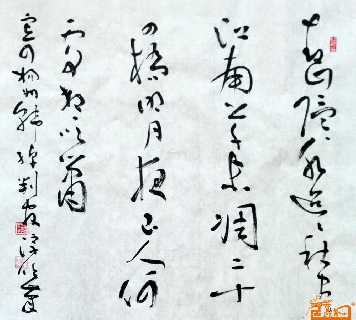 青山隐隐水迢迢秋尽
江南草未凋二十
四桥明月夜玉人何
处教吹箫
寄扬州韩绰判官